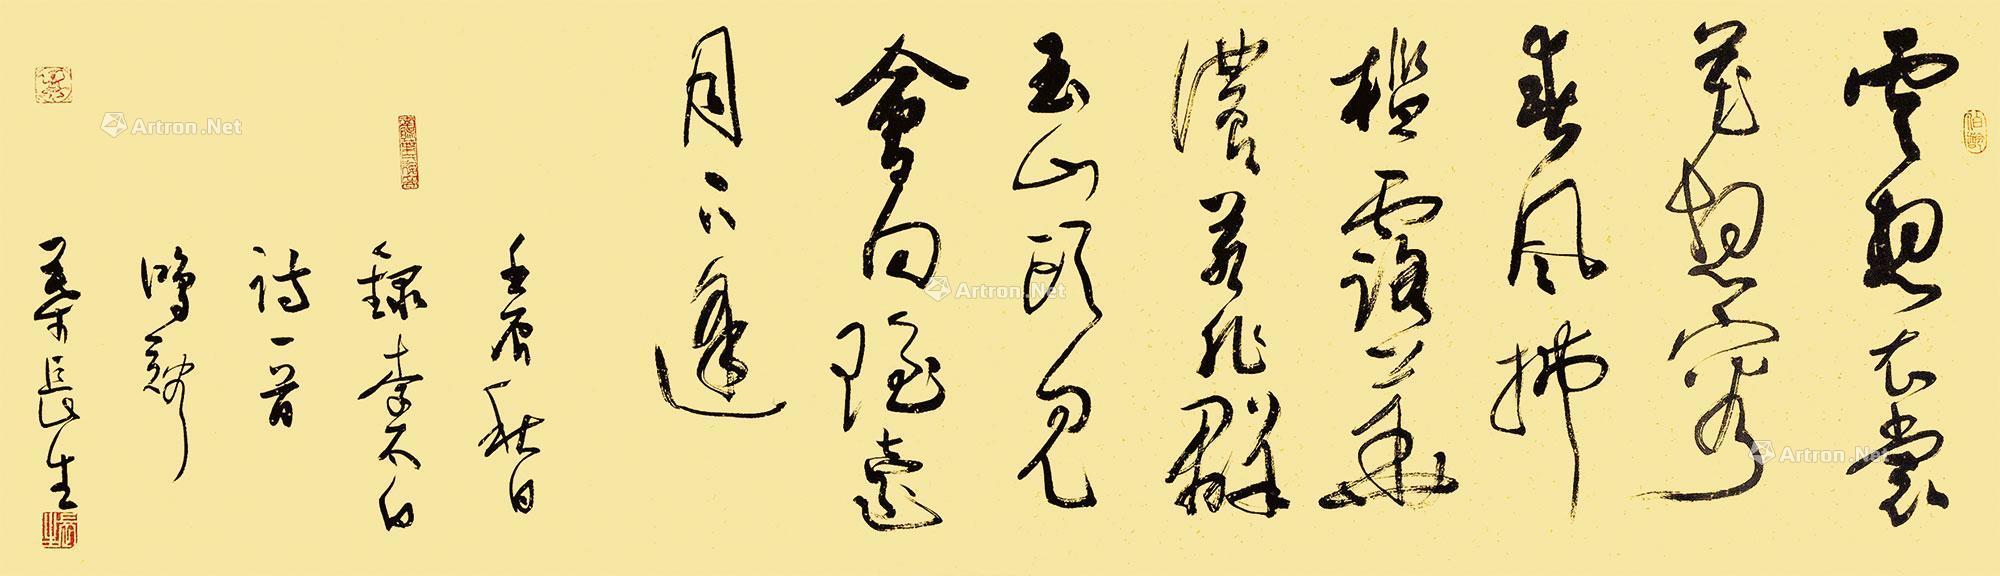 雲想衣裳
花想容
春风拂
檻露華
濃若非群
玉山頭見
會向瑶臺
月下逢
壬辰秋日
録李太白
诗一首
長生
Artron.Net
Artron.Net
Artron.Net